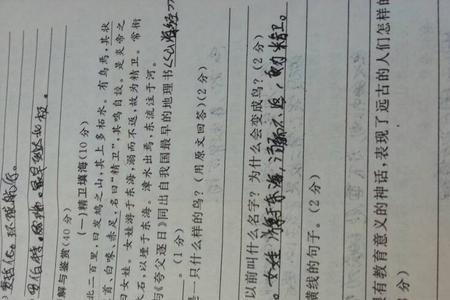 解与鉴赏(40分)
(一)精卫填海(10分)
北二百里,曰发鸠之山,其上多柘木。有鸟焉,其状
首,白喙,赤足,名曰“精卫”,其鸣自詨。是炎帝之
曰女娃。女娃游于东海,溺而不返,故为精卫。常衔
木石,以堙于东海。漳水出焉,东流注于河。
与《夸父逐日》同出自我国最早的地理书《山海经》
。(1分)
一只什么样的鸟?(用原文回答)(2分)
以前叫什么名字?为什么会变成鸟?(2分)
女娃 游于东海,溺而不返,
横线的句子。(2分)
有教育意义的神话,表现了远古的人们怎样的
分)